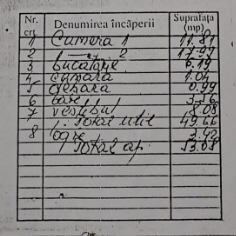 Nr. crt. Denumirea încăperii Suprafața (mp)
1 Camera 1 11.81
2 2 17.97
3 bucătărie 6.19
4 cămara 1.04
5 debara 0.99
6 baie 3.36
7 vestibul 8.08
Total util 49.66
8 logie 3.42
Total ap. 53.08